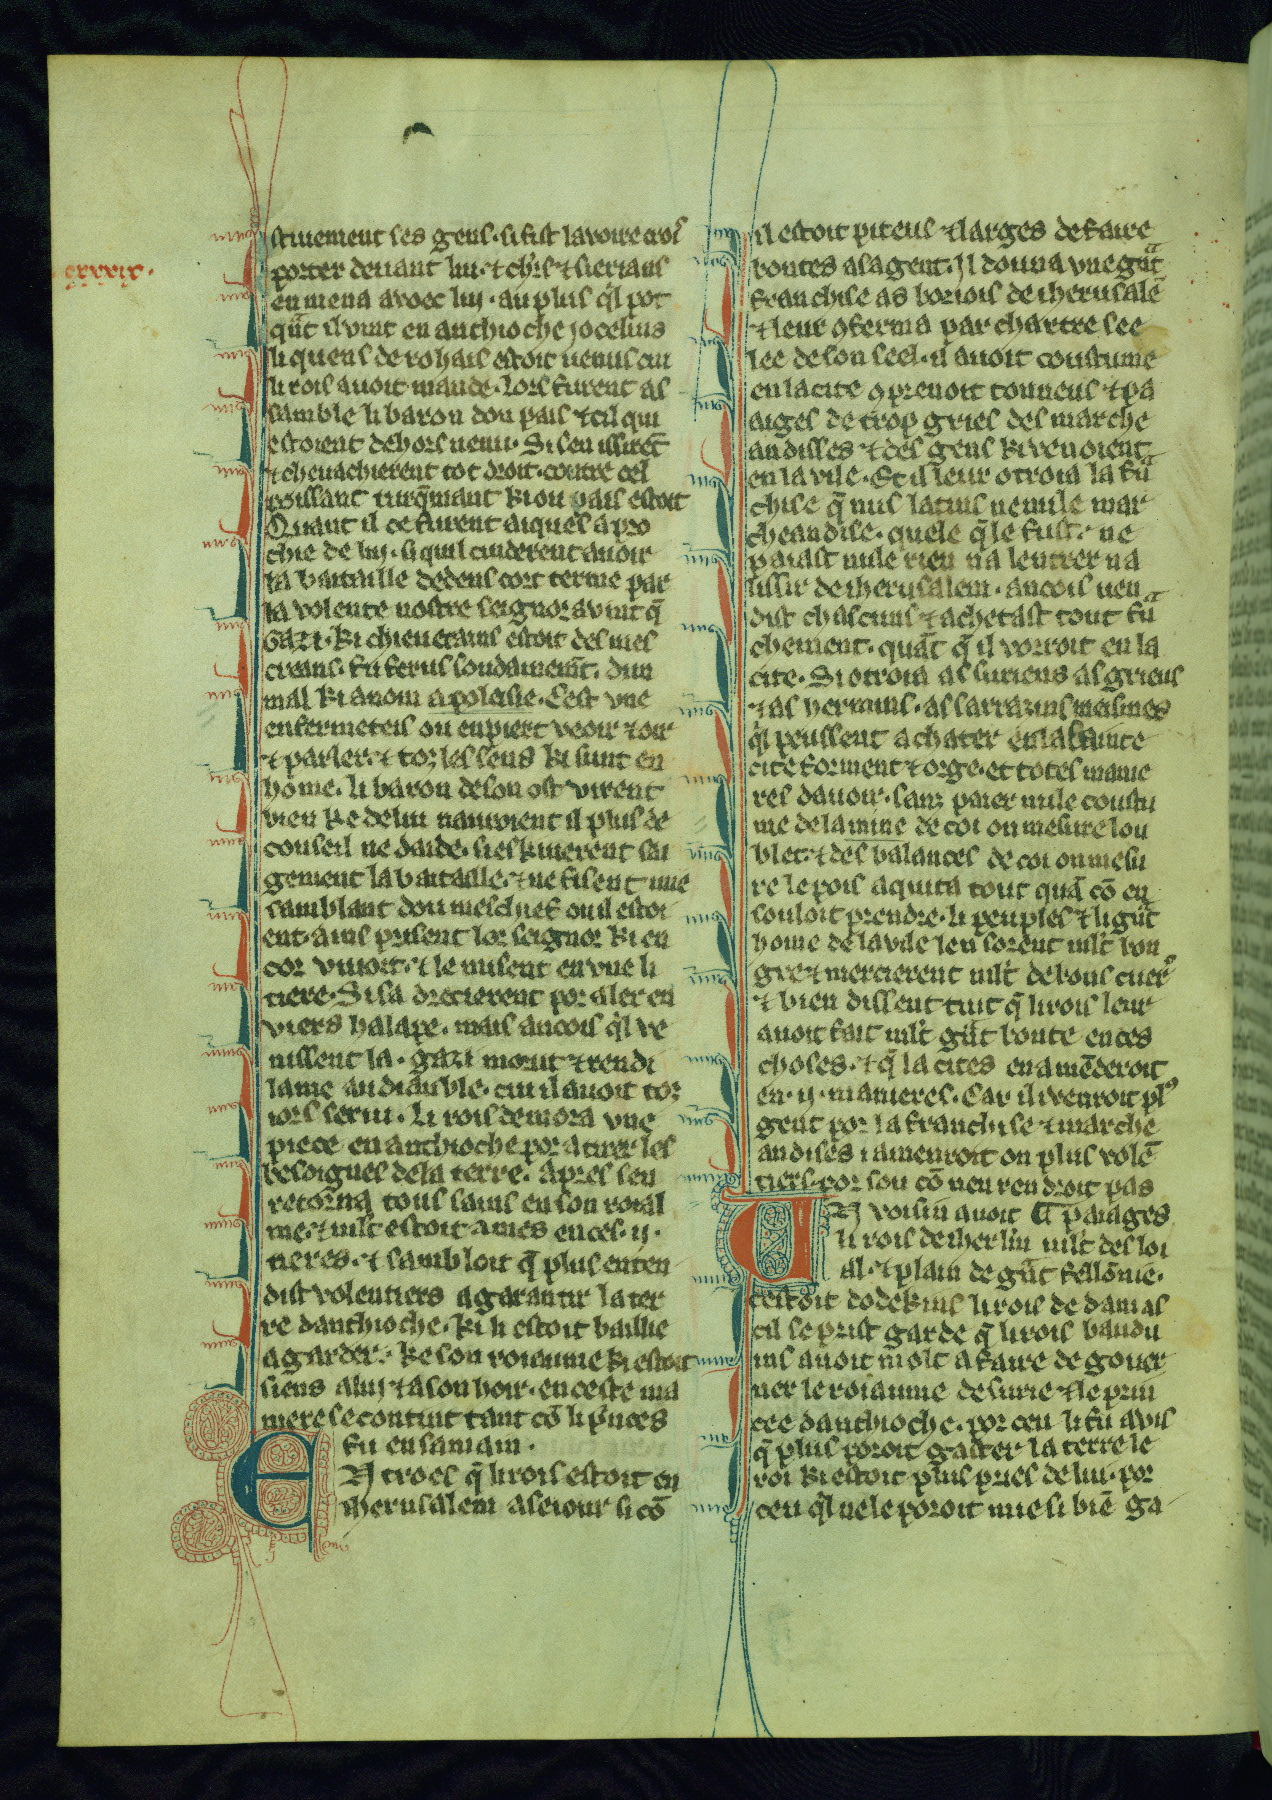 cxxxix.
stiuement ses gens. si fist la uoire croi
porter deuant lui. ⁊ chrs ⁊ sierians
en mena auoec lui. au plus ql pot
qnt il uint en anthioche jocelins
li quens de rohais estoit uenus cui
li rois auoit mande. lors furent as
samble li baron dou pais ⁊ cil qui
estoient dehors uenu. Si sen issiret
⁊ cheuachierent tot droit. contre cel
poissant turqmant ki ou pais estoit
Quant il ce furent aiques apro
chie de lui. si quil cuiderent auoir
la bataille dedens cort terme par
la volente nostre seignor auint q̄
Gazi. ki chieuetains estoit des mes
creans. fu ferus soudainemt. dun
mal ki a nom apolesie. Cest vne
enfermeteis ou en piert veoir ⁊ oir
⁊ parler. ⁊ toz les sens ki sunt en
home. li baron de son ost virent
bien ke de lui nauroient il plus de
conseil ne daide. si eskiuerent sa
gement la bataille. ⁊ ne fisent mie
samblant dou meschief ou il estoi
ent. ains prisent lor seignor ki en
cor viuoit. ⁊ le misent en vne li
tiere. Si sa drecierent por aler en
viers halape. mais ancois ql ve
nissent la. gazi morut ⁊ rendi
lame au diauble. cui il auoit toz
iors serui. li rois demora vne
piece en anthioche por atirer les
besoignes de la terre. apres sen
retorna tous sains en son roial
me. ⁊ mlt estoit ames en ces .ij.
tieres. ⁊ sambloit q̄ plus enten
dist volentiers a garantir la ter
re danthioche. ki li estoit baillie
a garder. ke son roiaume ki estoit
siens a lui ⁊ a son hoir. en ceste ma
niere se contint tant cō li p̄nces
fu ensamain.
EN troes q̄ li rois estoit en
iherusalem a seiour si cō
il estoit piteus ⁊ larges de faire
bontes a sa gent. Il douna vne gnt
franchise as boriois de iherusalē
⁊ leur 9ferma par chartre see
lee de son seel. il auoit coustume
en la cite 9 prenoit tonneus ⁊ pa
aiges de trop gries des marche
andisses ⁊ des gens ki venoient
en la vile. Et il leur otroia la fn
chise q̄ nus latins ne nule mar
cheandise. quele q̄ le fust. ne
paiast nule rien n a lentrer n a
lissir de iherusalem. ancois uen
dist chascuns ⁊ achetast tout fn
chement. quāt q̄ il vorroit en la
cite. Si otroia as suriens as grieus
⁊ as hermins. as sarrazins meismes
ql peussent achater en la sainte
cite forment ⁊ orge. et totes manie
res dauoir. sanz paier nule coustu
me de la mine de coi on mesure lou
blet. ⁊ des balances de coi on mesu
re le pois aquita tout quā cō en
souloit prendre. li peuples ⁊ li gnt
home de la vile len sorent mlt bon
gre ⁊ mercierent mlt de bons cuer9
⁊ bien dissent tuit q̄ li rois leur
auoit fait mlt gnt bonte en ces
choses. ⁊ q̄ la cites en amēderoit
en .ij. manieres. Car il i venroit pl9
gent por la franchise ⁊ marche
andises i amenroit on plus volē
tiers. por sou cō nen rendroit pas
UN voisin auoit ¶ paiages
li rois de iherlm mlt desloi
al. ⁊ plain de gnt fellōnie.
cestoit dodekins li rois de damas
cil se prist garde q̄ li rois baudu
ins auoit molt a faire de gouer
ner le roiaume de surie ⁊ le prin
cee danthioche. por ceu li fu auis
q̄ plus poroit gaster la terre le
roi ki estoit plus pries de lui. por
ceu ql ne le poroit mie si biē ga